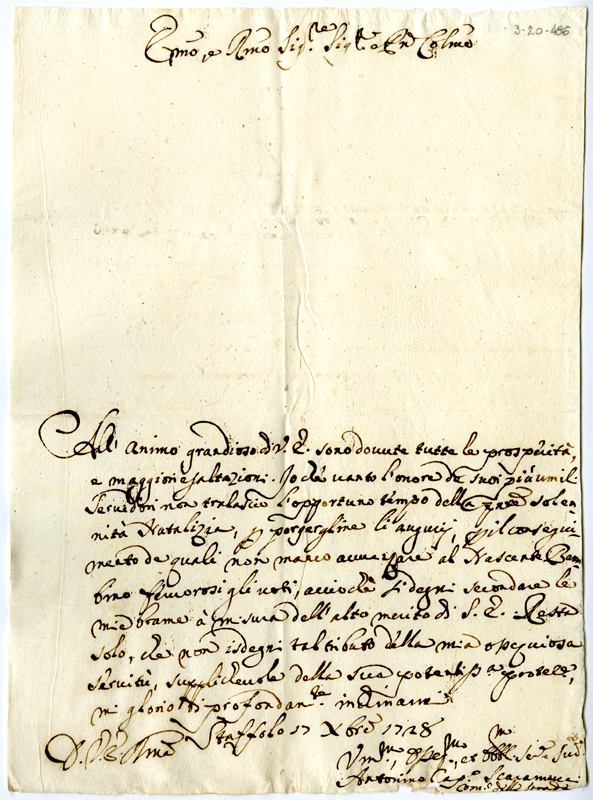 3-20-486
Emo, e Rmo Sig.re Sig.re e Prñ Colmo
All' animo grandioso di V. E. sono dovute tutte le prosperità,
e maggiori esaltazioni. Io che vanto l'onore de suoi più umili
Servidori non tralascio l'opportuno tempo della pnte solen-
nità Natalizia, p porgergliene li augurij, p il consegui-
mento de quali non manco avvanzare al Nascente Bam-
bino fervorosi gli voti, acciochè si degni secondare le
mie brame à misura dell'alto merito di V. E. Resta
solo, che non isdegni tal tributo della mia ossequiosa
servitù, supplichevole della sua potentiss.a protete,
mi glorio di profondam.te inclinarmi
Staffolo 17 Xbre 1728
D. V. E. Rma
Vm.mo, et Obbl.mo Serv.
Antonino Cap.o Scaramucci